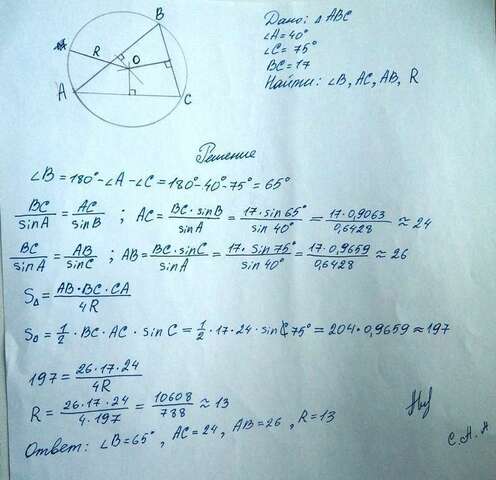 Дано: △ABC
∠A=40°
∠C= 75°
BC=17
Найти: ∠B, AC, AB, R
B
R
O
A
C
Решение
∠B=180°-∠A-∠C=180°-40°-75°=65°
BC/sinA = AC/sinB ; AC = BC·sinB/sinA = 17·sin65°/sin40° = 17·0,9063/0,6428 ≈ 24
BC/sinA = AB/sinC ; AB = BC·sinC/sinA = 17·sin75°/sin40° = 17·0,9659/0,6428 ≈ 26
S△ = AB·BC·CA/4R
S△ = 1/2·BC·AC·sinC = 1/2·17·24·sin75° = 204·0,9659 ≈ 197
197 = 26·17·24/4R
R = 26·17·24/4·197 = 10608/788 ≈ 13
Ответ: ∠B=65°, AC=24, AB=26, R=13
С.А.А